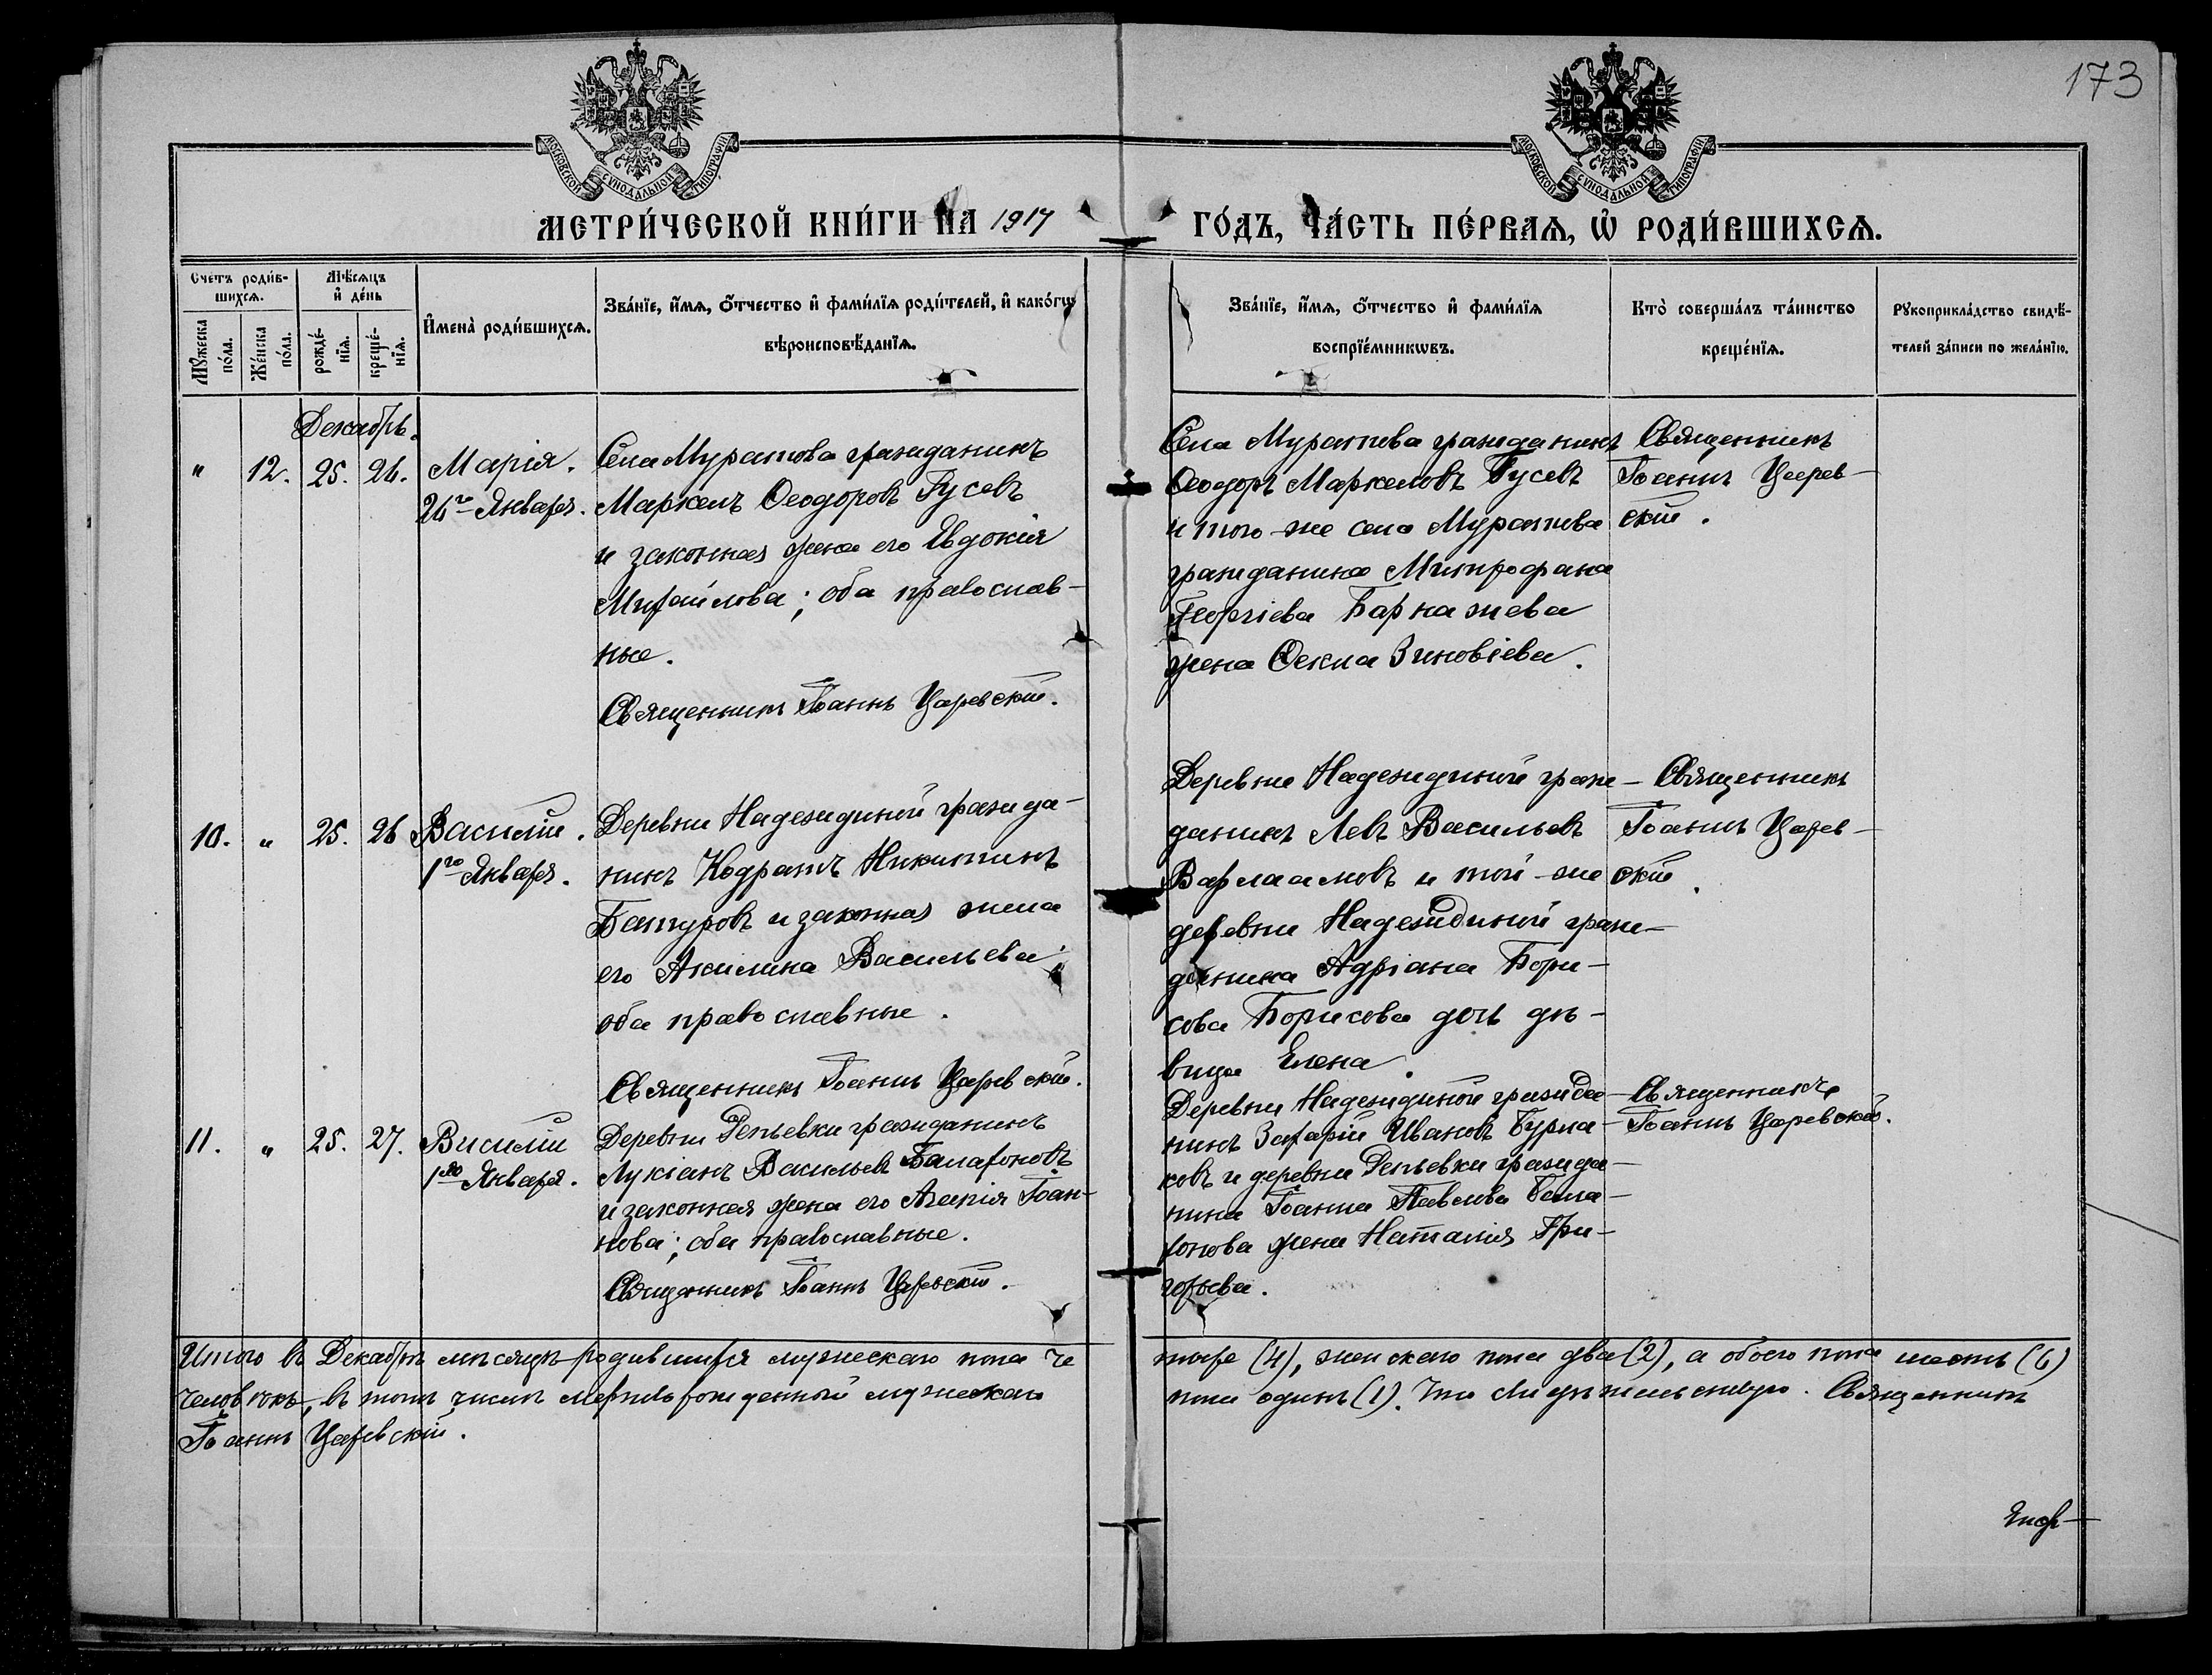 173
МОСКОВСКОЙ СѴНОДАЛЬНОЙ ТИПОГРАФІИ
МОСКОВСКОЙ СѴНОДАЛЬНОЙ ТИПОГРАФІИ
МЕТРИ́ЧЕСКОЙ КНИ́ГИ НА 1917
ГО́ДЪ, ЧА́СТЬ ПЕ́РВАѦ, Ѡ҆ РОДИ́ВШИХСѦ.
Сче́тъ роди́в-
шихсѧ.
Мѣ́сѧцъ
и҆ де́нь
Мꙋ́жеска
по́ла.
Же́нска
по́ла.
рожде́-
нїѧ.
креще́-
нїѧ.
И҆мена̀ роди́вшихсѧ.
Зва́нїе, и҆́мѧ, ѻ҆́тчество и҆ фами́лїѧ роди́телей, и҆ како́гѡ
вѣроисповѣ́данїѧ.
Зва́нїе, и҆́мѧ, ѻ҆́тчество и҆ фами́лїѧ
воспрїе́мникѡвъ.
Кто̀ соверша́лъ та́инство
креще́нїѧ.
Рꙋкоприкла́дство свидѣ́-
телей за́писи по жела́нїю.
Декабрь.
" 12. 25. 26. Марія.
26го Января.
Села Муратова гражданинъ
Маркелъ Ѳеодоровъ Гусевъ
и законная жена его Евдокія
Михайлова; оба православ-
ные.
Священникъ Іоаннъ Царевскій.
Села Муратова гражданинъ
Ѳеодоръ Маркеловъ Гусевъ
и того-же села Муратова
гражданина Митрофана
Георгіева Баркашева
жена Ѳекла Зиновіева.
Священникъ
Іоаннъ Царев-
скій.
10. " 25. 26 Василій.
1го Января.
Деревни Надеждиной гражда-
нинъ Кодратъ Никитинъ
Батуровъ и законная жена
его Акилина Васильева;
оба православные.
Священникъ Іоаннъ Царевскій.
Деревни Надеждиной граж-
данинъ Левъ Васильевъ
Варлаамовъ и той-же
деревни Надеждиной граж-
данина Адріана Бори-
сова Борисова дочь дѣ-
вица Елена.
Священникъ
Іоаннъ Царев-
скій.
11. " 25. 27. Василій
1го Января.
Деревни Репьевки гражданинъ
Лукіанъ Васильевъ Балахоновъ
и законная жена его Агапія Іоан-
нова; оба православные.
Священникъ Іоаннъ Царевскій.
Деревни Надеждиной гражда-
нинъ Захарій Ивановъ Бурла-
ковъ и деревни Репьевки гражда-
нина Іоанна Павлова Бала-
хонова жена Наталія Гри-
горьева.
Священникъ
Іоаннъ Царевскій.
Итого въ Декабрѣ мѣсяцѣ родившихся мужескаго пола че
тыре (4), женскаго пола два (2), а обоего пола шесть (6)
человѣкъ, въ томъ числѣ мертворожденный мужескаго
пола одинъ (1). Что свидѣтельствую. Священникъ
Іоаннъ Царевскій.